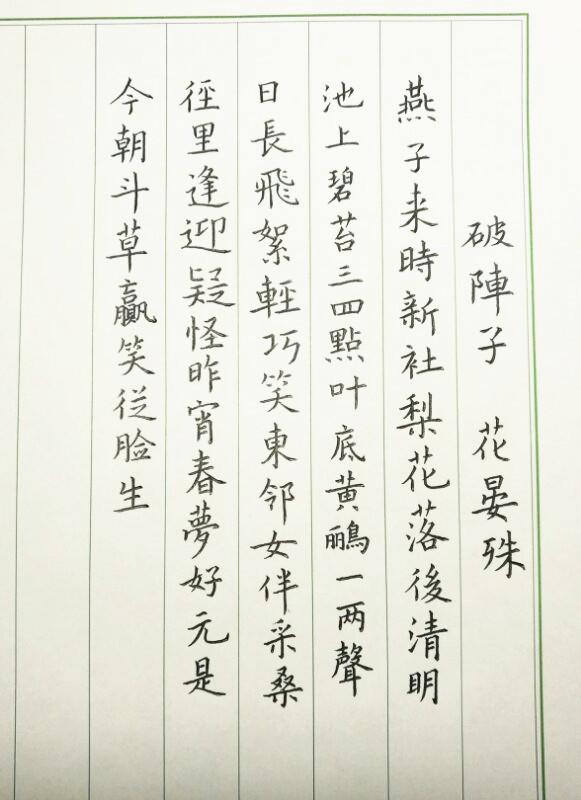 破陣子 花晏殊
燕子来時新社梨花落後清明
池上碧苔三四點叶底黄鸝一两聲
日長飛絮輕巧笑東邻女伴采桑
徑里逢迎疑怪昨宵春夢好元是
今朝斗草贏笑従脸生